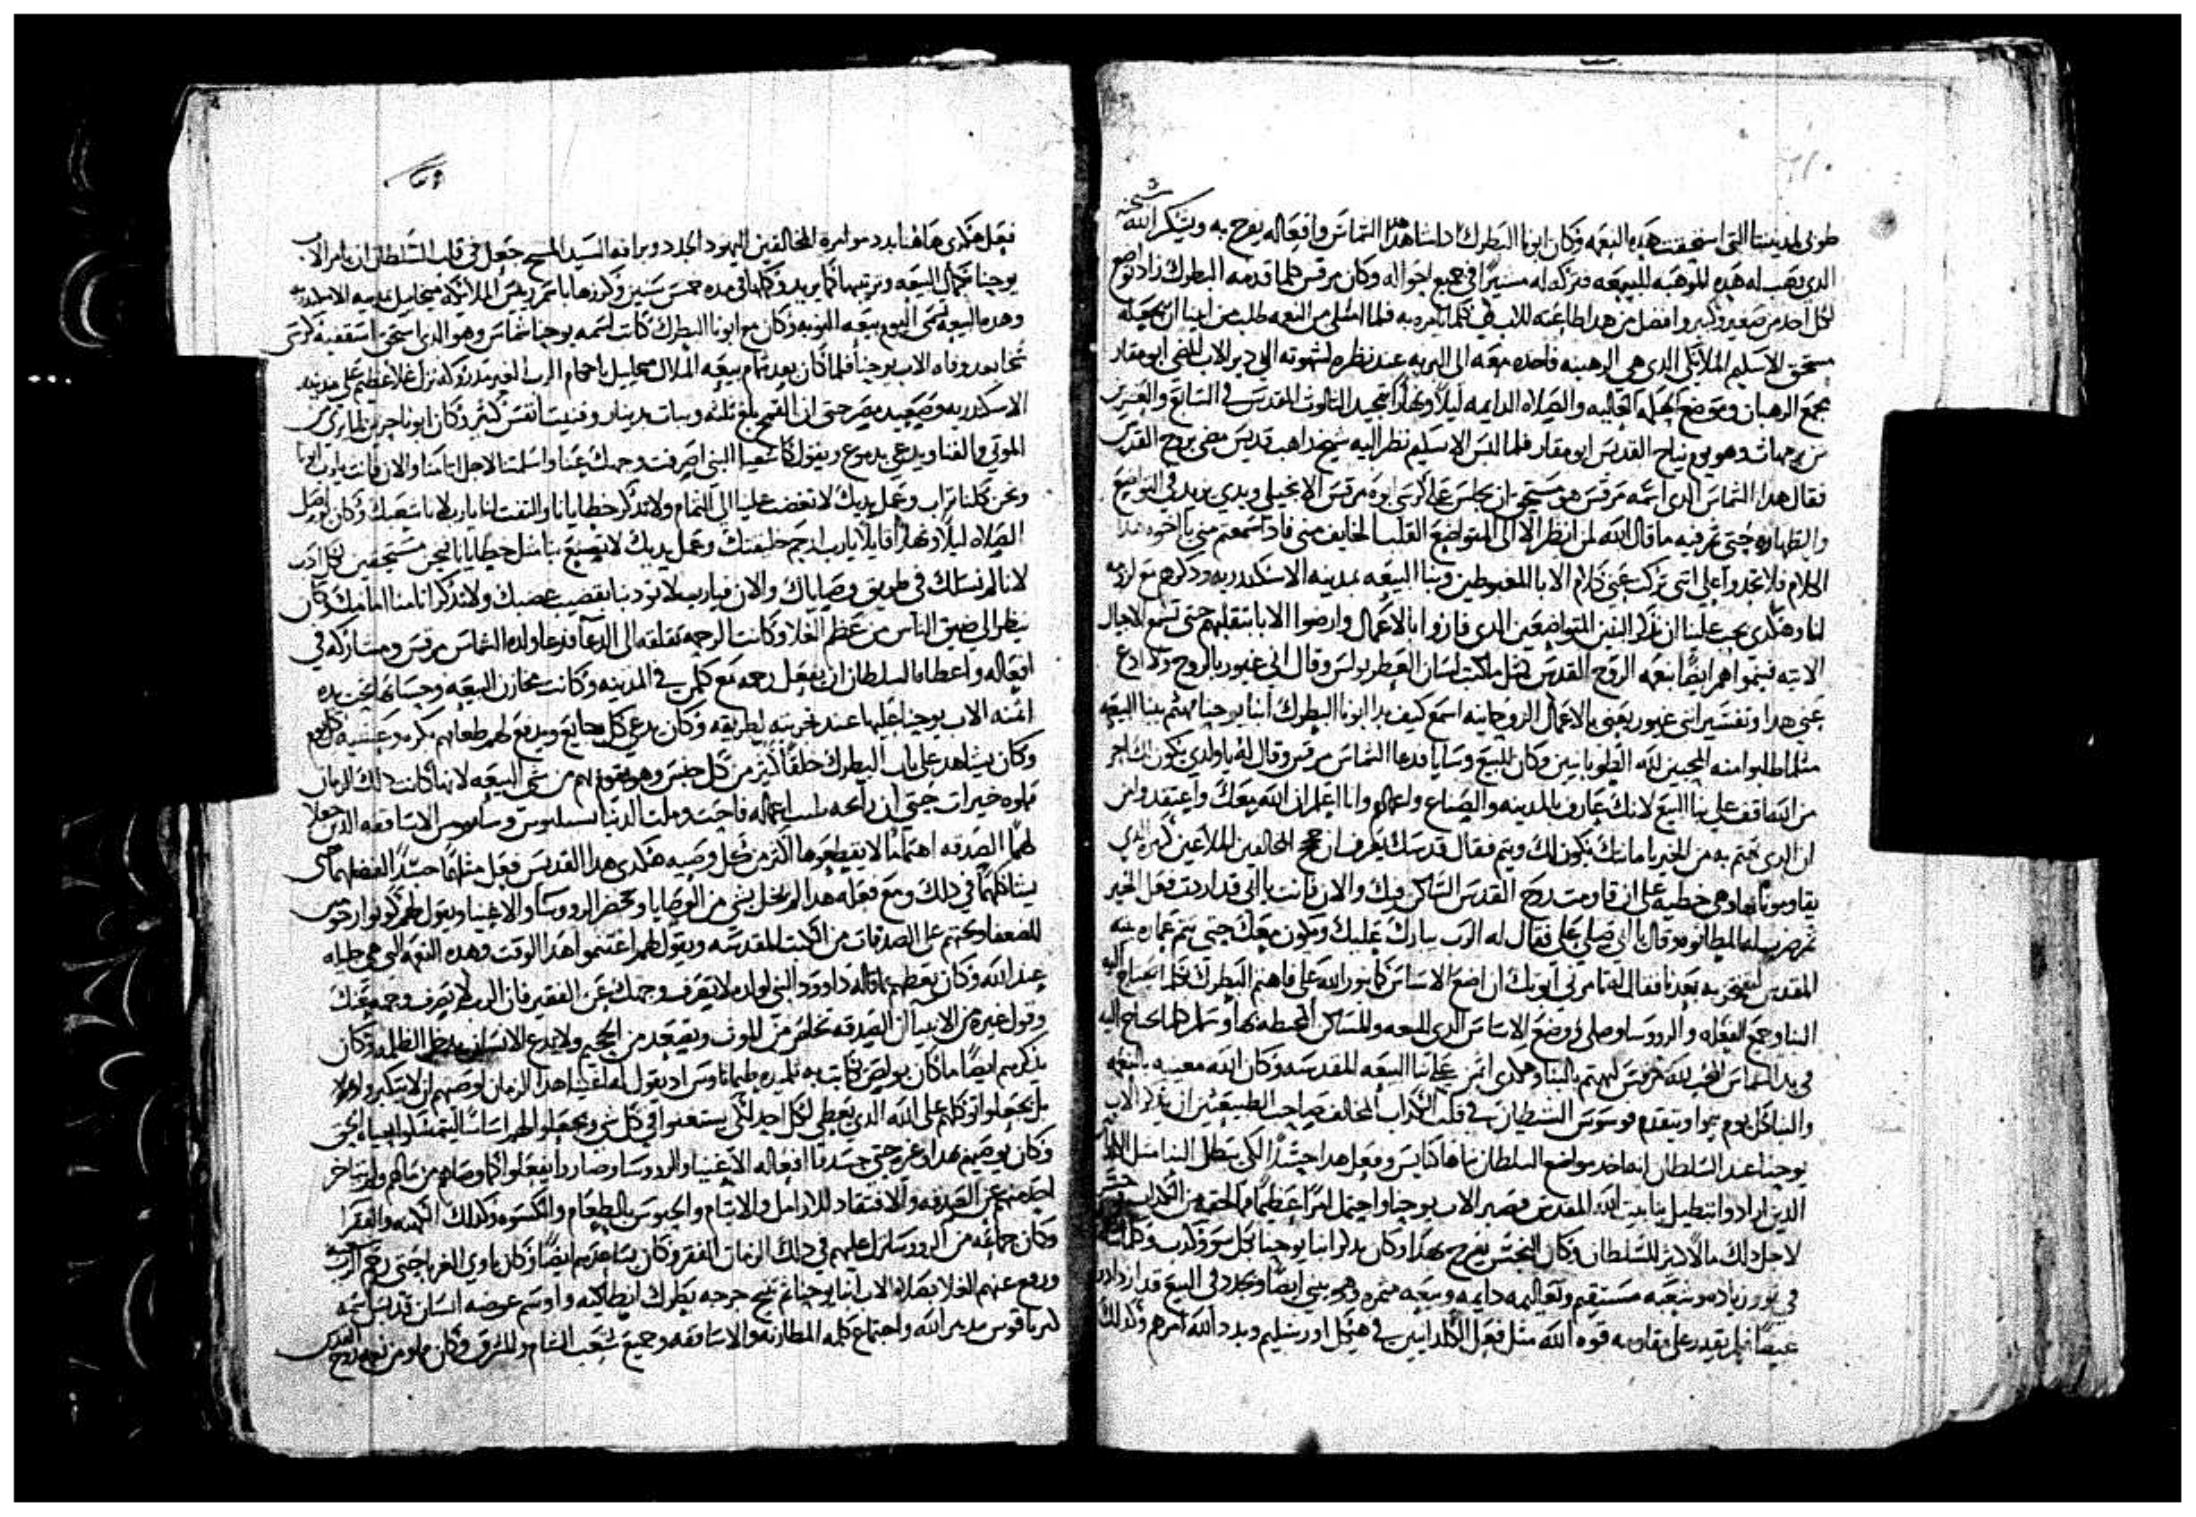 طوبى لمدينتنا التى استحقت هده النعمه وكان ابونا البطرك ادا شاهد هذا الشماس وافعاله يفرح به ويشكر الله
الدى وهب له هده الموهبه للبيعه فتركه له مشيرًا فى جميع احواله وكان مرقس كلما قدمه البطرك زاد تواضع
لكل احد من صغير وكبير وافضل من هدا طاعته للاب فى كلما يامره به فلما امتلى من النعمه طلب من ابينا ان يجعله
مستحق الاسكيم الملايكى الدى هى الرهبنه فاخده معه الى البريه عند نظره لشهوته الى دير الاب القديس ابو مقار
مجمع الرهبان وموضع الحكمه العاليه والصلاه الدايمه ليلًا ونهارًا لتمجيد التالوث المقدس فى السابع والعشرين
من برمهات وهو يوم نياح القديس ابو مقار فلما البس الاسكيم نظر اليه شيخ راهب قديس مضى بروح القدس
فقال هدا الشماس الدى اسمه مرقس هو مستحق ان يجلس على كرسى ابوه مرقس الانجيلى ويدى يزيد فى التواضع
والطهاره حتى تم فيه ما قال الله لمن انظر الا الى المتواضع القلب الخايف منى فادا سمعتم منى يا اخوه هدا
الكلام فلا تجدوا على انى تركت عنى كلام الابا المغبوطين وبنا البيعه بمدينه الاسكندريه ودكرهم مع
لنا وهكدى يجب علينا ان ندكر البنين المتواضعين الدى فازوا بالاعمال وارضوا الابا بتقلبهم حتى تسمع الاجيال
الاتيه فيتموا هم ايضًا بنعمه الروح القدس كمثل ما كتب لسان العطر بولس وقال انى غيور بالروح ولا ادع
عنى هدا وتفسير انى غيور يعنى بالاعمال الروحانيه اسمع كيف بدا ابونا البطرك انبا يوحنا مهتم ببنا البيعه
مثلما طلبوا منه المحبين لله الطوبانيين وكان للبيع وسايا فدعا الشماس مرقس وقال له يا ولدى يكون لك اجر
من الله قف على بنا البيع لانك عارف بالمدينه والصناع واعمالهم وانا اعلم ان الله معك واعتقد وامن
ان الدى تهتم به من الخير بامانتك يكون لك ويتم فقال قدسك يعرف ان حجج المخالفين الملاعين كبير الدى
يقاومونا بها وهى خطيه على ان قاومت روح القدس الساكن فيك والان فانت يا ابى قد اردت فعل الخير
ثم ضرب له المطانوه وقال يا ابى صلى على فقال له الرب يبارك عليك ويكون معك حتى يتم عماره بيته
المقدس لنفتخر به بعدنا فقال له تامرنى ابوتك ان اضع الاساس كما بنور الله على فاهتم البطرك بكلما يحتاج اليه
البنا وجمع الفعله والروسا وصلى فى وضع الاساس الدى للبيعه والمساكن المحيطه بها وسلم كلما يحتاج اليه
فى يد الشماس المحب لله مرقس ليهتم بالبنا وهكدى اتمن على بنا البيعه المقدسه وكان الله معينه بالنعمه
والبنا كل يوم ينموا ويتقدم فوسوس الشيطان فى قلب الكداب المخالف صاحب الطبيعتين ان يدكر الاب
يوحنا عند السلطان انه اخد مواضع السلطان بناها كنايس وفعل هدا حسدًا لكى يبطل البنا مثل الاول
الدين ارادوا تبطيل بنا بيت الله المقدس فصبر الاب يوحنا واحتمل امرًا عظيمًا مما لحقه من الكداب
لاجل دلك مالًا كثير للسلطان وكان النجس يفرح بهدا وكان يدكر انبا يوحنا بكل سو وكدب وكلماته
فى نور زياده وشعبه مستقيم وتعاليمه دايمه وبيعه مثمره وهو يبنى ايضًا ويجدد فى البيع قد ازداد
غيضًا فلم يقدر على مقاومه قوه الله مثل فعل الكلدانيين فى هيكل اورشليم وبدد الله امرهم وكدلك
فعل هكدى هاهنا بدد موامرة المخالفين اليهود الجدد وبرافه السيد المسيح جعل فى قلب السلطان ان يامر الاب
يوحنا بكمال البيعه وترتيبها كما يريد وكملها فى مده خمس سنين وكرزها باسم رييس الملايكه ميخاييل بمدينه الاسكندريه
وهده البيعه تسمى اليوم بيعه التوبه وكان مع ابونا البطرك كاتب اسمه يوحنا شماس وهو الدى استحق اسقفيه كرسى
سخا بعد وفاه الاب يوحنا فلما كان بعد تمام بيعه الملاك ميخاييل باحكام الرب الغير مدروكه نزل غلا عظيم على مدينه
الاسكندريه وصعيد مصر حتى ان القمح بلغ تلته ويبات بدينار وفنيت انفس كثير وكان ابونا حزين لما يرى من
الموتى والفنا ويدعى بدموع ويقول كاشعيا النبى اصرفت وجهك عنا واسلمتنا لاجل اتامنا والان فانت يا رب ابونا
ونحن كلنا تراب وعمل يديك لا تغضب علينا الى التمام ولا تدكر خطايانا والتفت لنا يا رب لاننا شعبك وكان يواصل
الصلاه ليلًا ونهارًا قايلًا يا رب ارحم خليقتك وعمل يديك لا تصنع بنا مثل خطايانا نحن مستحقين لكل ادب
لاننا لم نسلك فى طريق وصاياك والان فيارب لا تودبنا بقضيب غضبك ولا تدكر اتامنا امامك وكان
ينظر الى ضيق الناس من عظم الغلا وكانت الرحمه تقلقه الى الدعا فدعا ولده الشماس مرقس ومشاركه فى
افعاله واعطاه السلطان ان يفعل رحمه مع كلمن فى المدينه وكانت مخازن البيعه وحسابها تحت يده
ايتمنه الاب يوحنا عليها عند تجربته لطريقه وكان يدعى كل جايع ويدفع لهم طعامهم بكره وعشيه كل يوم
وكان يشاهد على باب البطرك خلقًا كثير من كل جنس وهو يقوتهم من بيت البيعه لانها كانت دلك الزمان
مملوه خيرات حتى ان رايحه طيب اعماله فاحت وملت الدنيا الاساقفه الدين جعلا
لهما الصدقه اهتمامًا لا يقطعوها اكثر من كل وصيه هكدى هدا القديس فعل مثلهما حسدًا لفضلهما حتى
يشاكلهما فى دلك ومع فعله هدا لم يخل بشى من الوصايا ويحضر الروسا والاغنيا ويقول لهم كونوا رحومين
للضعفا ويحثهم على الصدقات من الكتب المقدسه ويقول لهم اغتنموا هدا الوقت وهده النعمه التى هى جليله
عند الله وكان يعظهم بما قاله داوود النبى لولده لا تصرف وجهك عن الفقير فان الرب لم يصرف وجهه عنك
وقول غيره من الانبيا ان الصدقه تخلص من الموت وتصعد من الجحيم ولا تدع الانسان يدخل الظلمه وكان
يدكرهم ايضًا ما كان بولص كاتب به تلميده طيماتاوس اد يقول له اغنيا هدا الزمان اوصيهم ان لا يتكبروا ولا
بل يجعلوا توكلهم على الله الدى يعطى لكل احد لكى يستغنوا فى كل شى ويجعلوا لهم اساسًا ليتمسكوا بحياه الحق
وكان يوصيهم بهدا وغيره حتى حسدوا افعاله الاغنيا والروسا وصاروا يفعلوا كما وصاهم من مالهم ولم يتاخر
احد منهم عن الصدقه والافتقاد للارامل والايتام والحبوس بالطعام والكسوه وكدلك الكهنه والفقرا
وكان جماعه من الروسا نزل عليهم فى دلك الزمان الفقر وكان يساعدهم ايضًا وكان ياوى الغربا حتى رحم الرب شعبه
ورفع عنهم الغلا بصلاه الاب انبا يوحنا ثم تنيح جرجه بطرك انطاكيه واوسم عوضه انسان قديس اسمه
كرياقوس بتدبير الله واجتماع كلمه المطارنه والاساقفه وجميع شعب الشام والمشرق وكان مملو من نعمه روح القدس